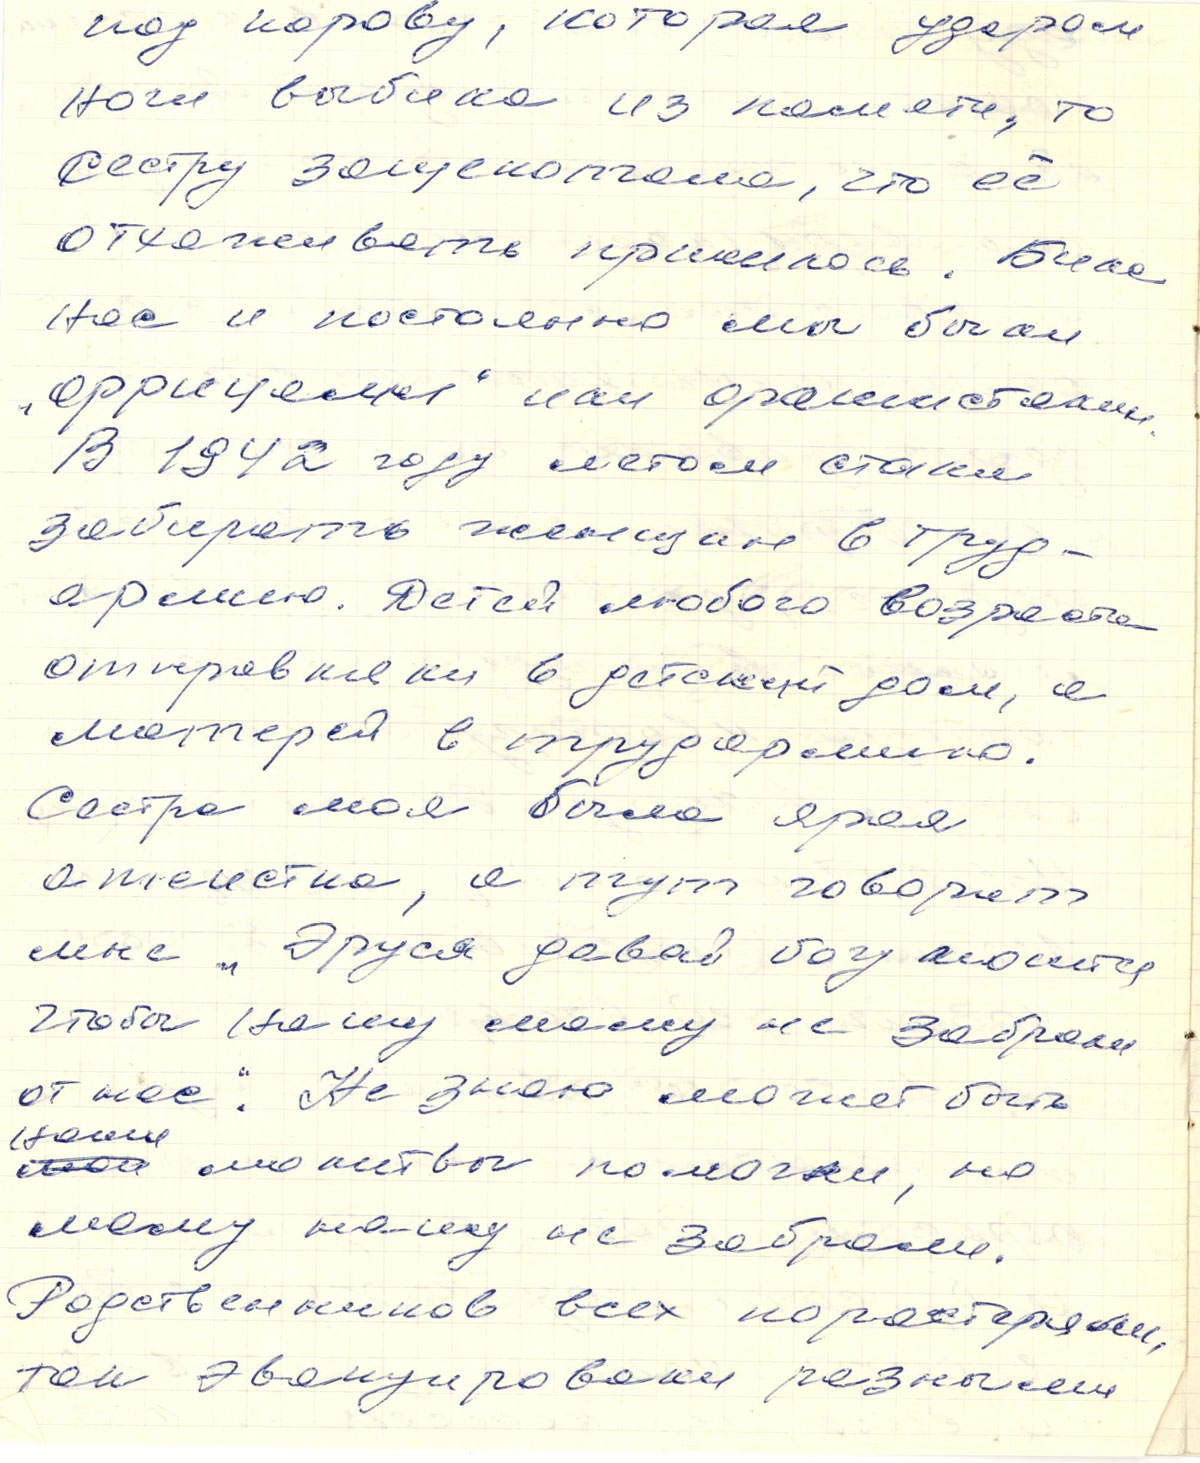 под корову, которая ударом
ноги выбила из памяти, то
сестру защекотала, что её
отхаживать пришлось. Били
нас и постоянно мы были
„фрицами“ или фашистами.
В 1942 году летом стали
забирать женщин в труд-
армию. Детей любого возраста
отправляли в детский дом, а
матерей в трудармию.
Сестра моя была ярая
атеистка, а тут говорит
мне „Эруся давай богу молится
чтобы нашу маму не забрали
от нас“. Не знаю может быть
наши
мои молитвы помогли, но
маму нашу не забрали.
Родственников всех порастеряли,
так эвакуировали разными